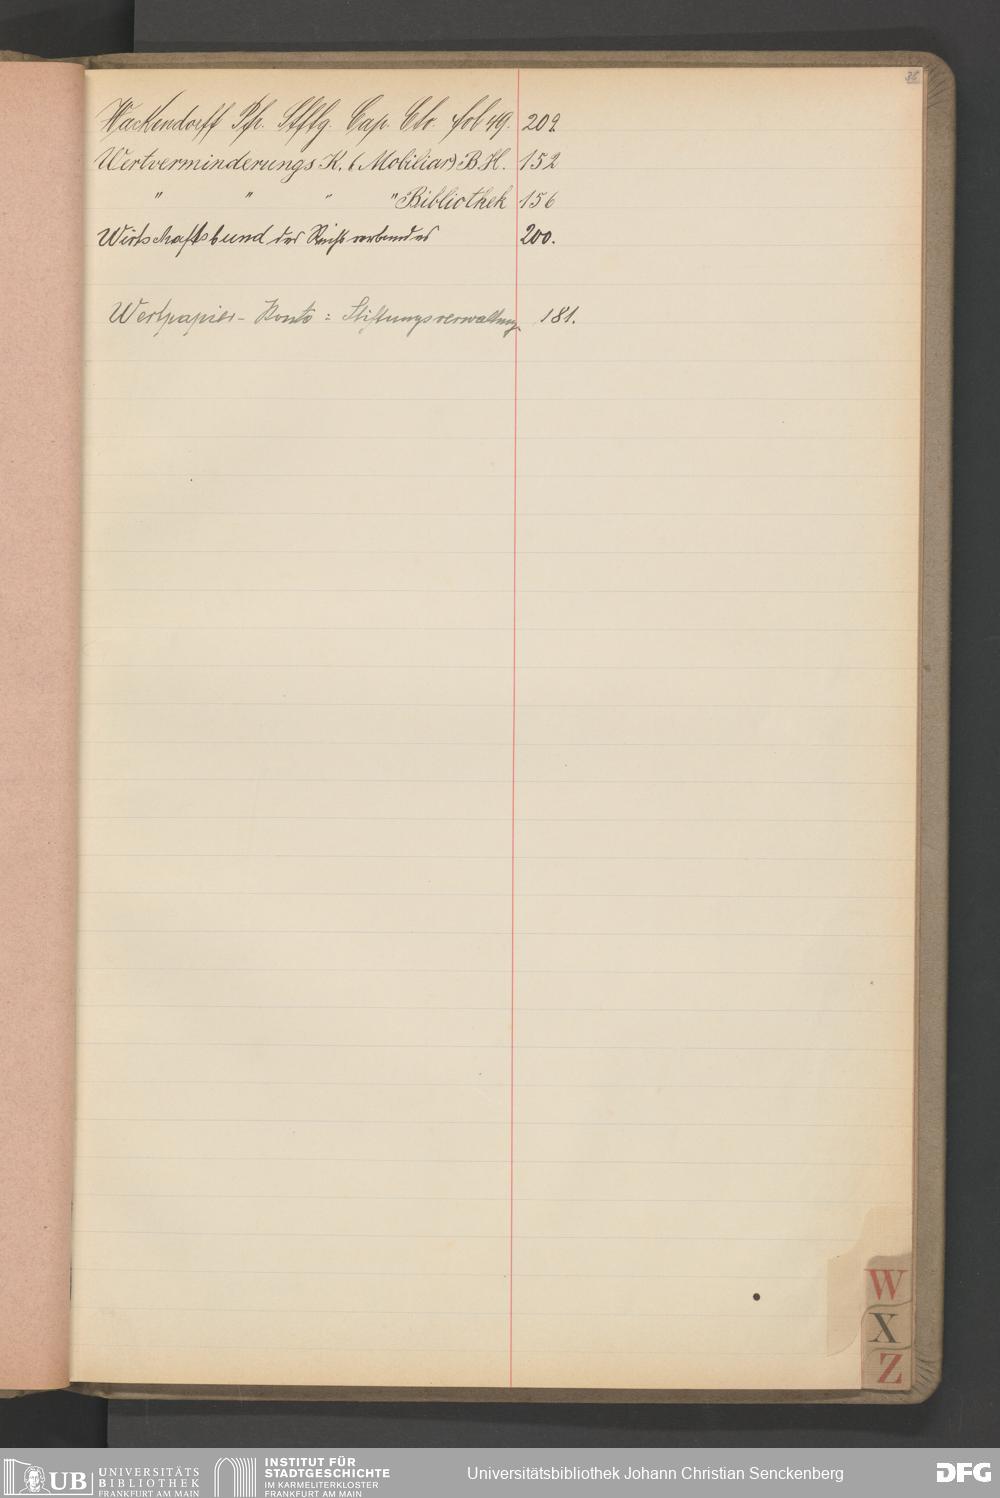 36
Wackendorff Ph. Stfftg. Cap. Cto. fol 49. 209.
Wertverminderungs K. (Mobiliar) B.H. 152
" " " " Bibliothek 156
Wirtschaftsbund des Reichsverbandes 200.
Wertpapier-Konto: Stiftungsverwaltung 181.
W
X
Z
UB UNIVERSITÄTS
BIBLIOTHEK
FRANKFURT AM MAIN
INSTITUT FÜR
STADTGESCHICHTE
IM KARMELITERKLOSTER
FRANKFURT AM MAIN
Universitätsbibliothek Johann Christian Senckenberg
DFG